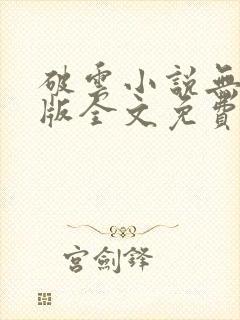 破雲小說無
版全文免費
宮劍鋒